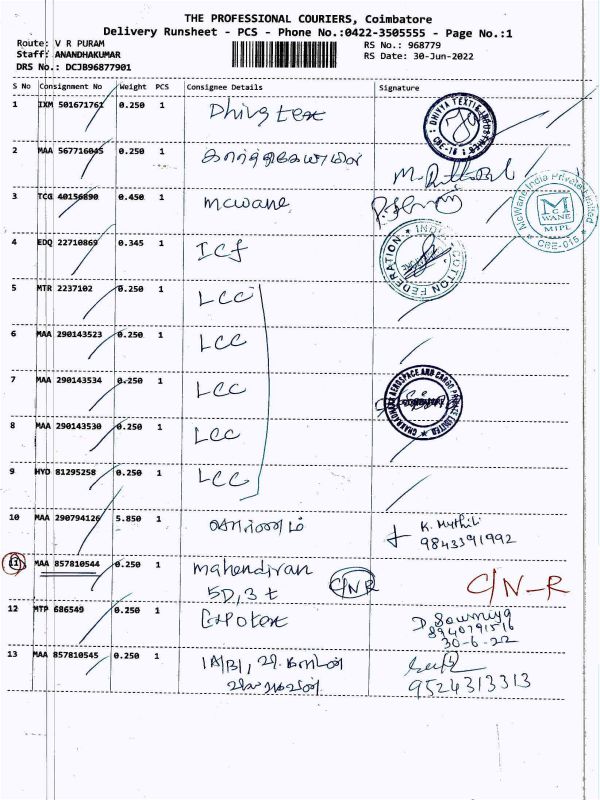 THE PROFESSIONAL COURIERS, Coimbatore
Delivery Runsheet - PCS - Phone No.:0422-3505555 - Page No.:1
Route: V R PURAM
RS No.: 968779
Staff: ANANDHAKUMAR
RS Date: 30-Jun-2022
DRS No.: DCJB96877901
S No Consignment No Weight PCS Consignee Details Signature
1 IXM 501671761 0.250 1 Dhivya tex
DHIVYA TEXTILE
CBE-18
2 MAA 567716045 0.250 1
3 TCG 40156890 0.450 1 mcwane
McWane India Private Limited
McWANE
MIPL
CBE-015
4 EDQ 22710869 0.345 1 ICf
INDIAN COTTON FEDERATION
5 MTR 2237102 0.250 1 LCC
6 MAA 290143523 0.250 1 LCC
7 MAA 290143534 0.250 1 LCC
AEROSPACE AND CARGO PRIVATE LIMITED
8 MAA 290143530 0.250 1 LCC
9 HYD 81295258 0.250 1 LCC
10 MAA 290794126 5.850 1 K. Mythili
9843391992
11 MAA 857810544 0.250 1 mahendiran C/N-R
5D, 3 t C/N R
12 MTP 686549 0.250 1 Expotex D. Sowmiya
8940791516
30-6-22
13 MAA 857810545 0.250 1 1A/B1,
9524313313